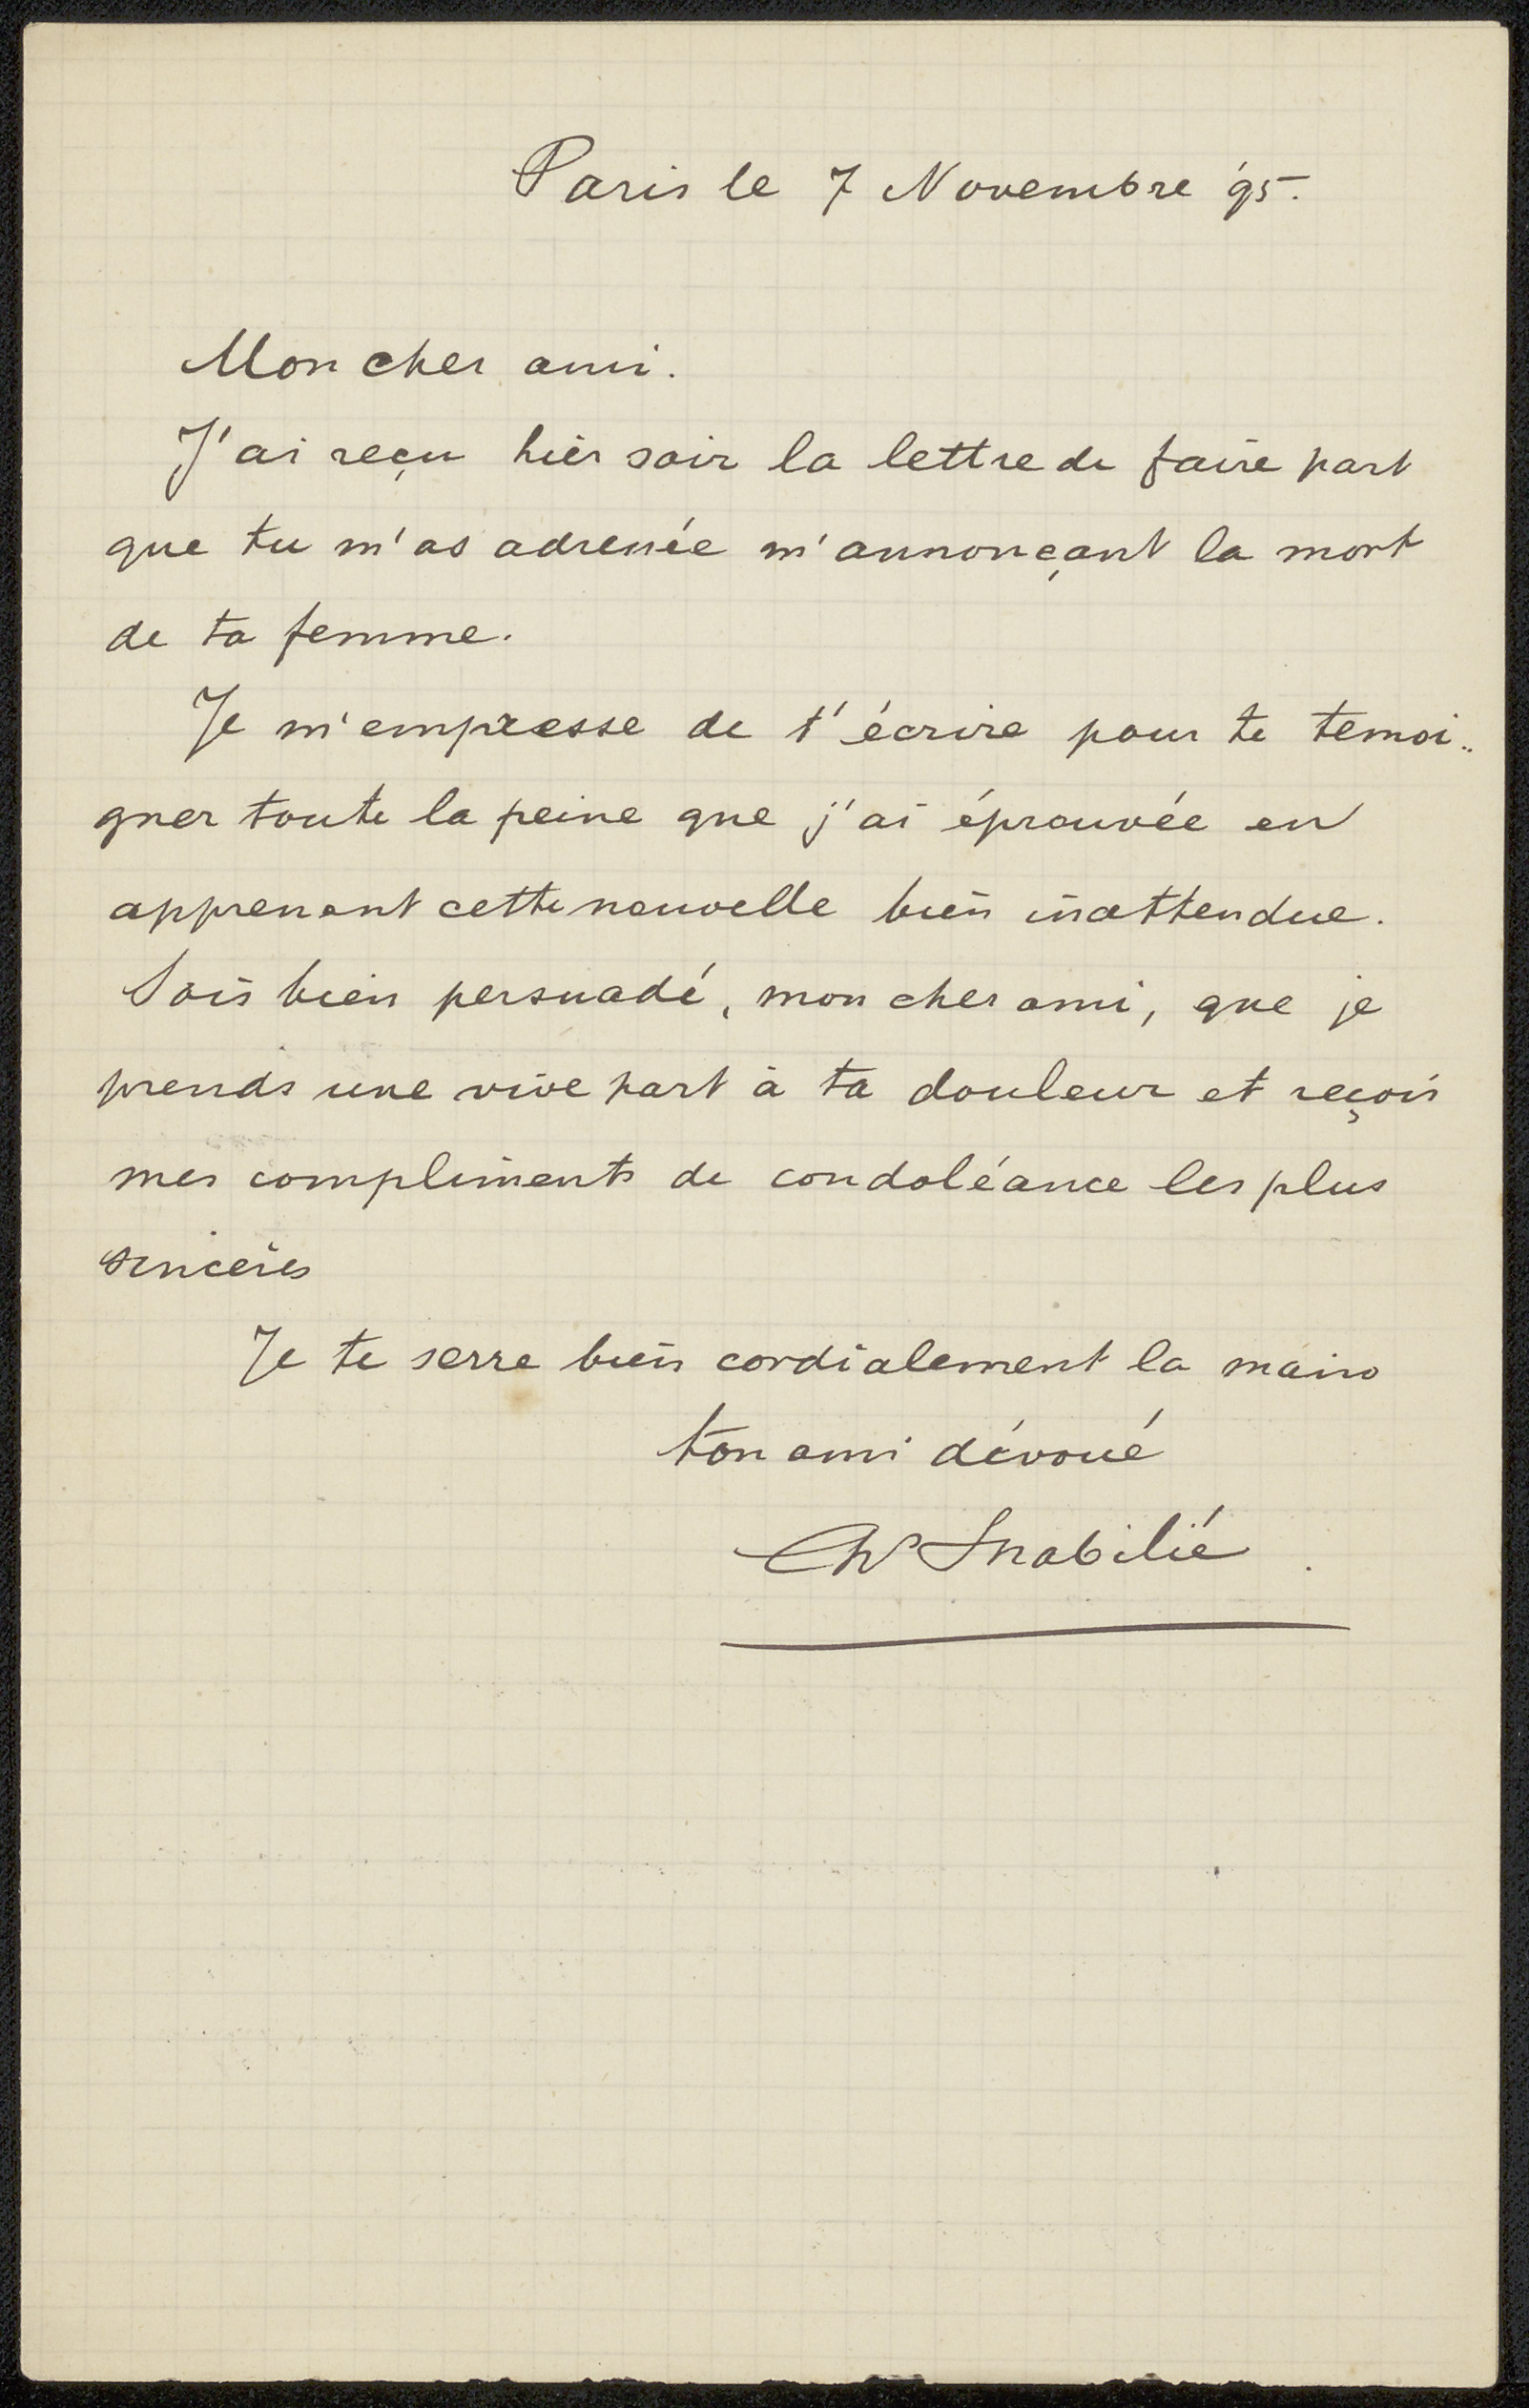 Paris le 7 Novembre 95.
Mon cher ami.
J'ai reçu hier soir la lettre de faire part
que tu m'as adressée m'annonçant la mort
de ta femme.
Je m'empresse de t'écrire pour te temoi-
gner toute la peine que j'ai éprouvée en
apprenant cette nouvelle bien inattendue.
Sois bien persuadé, mon cher ami, que je
prends une vive part à ta douleur et reçois
mes compliments de condoléance les plus
sinceres
Je te serre bien cordialement la main
ton ami dévoué